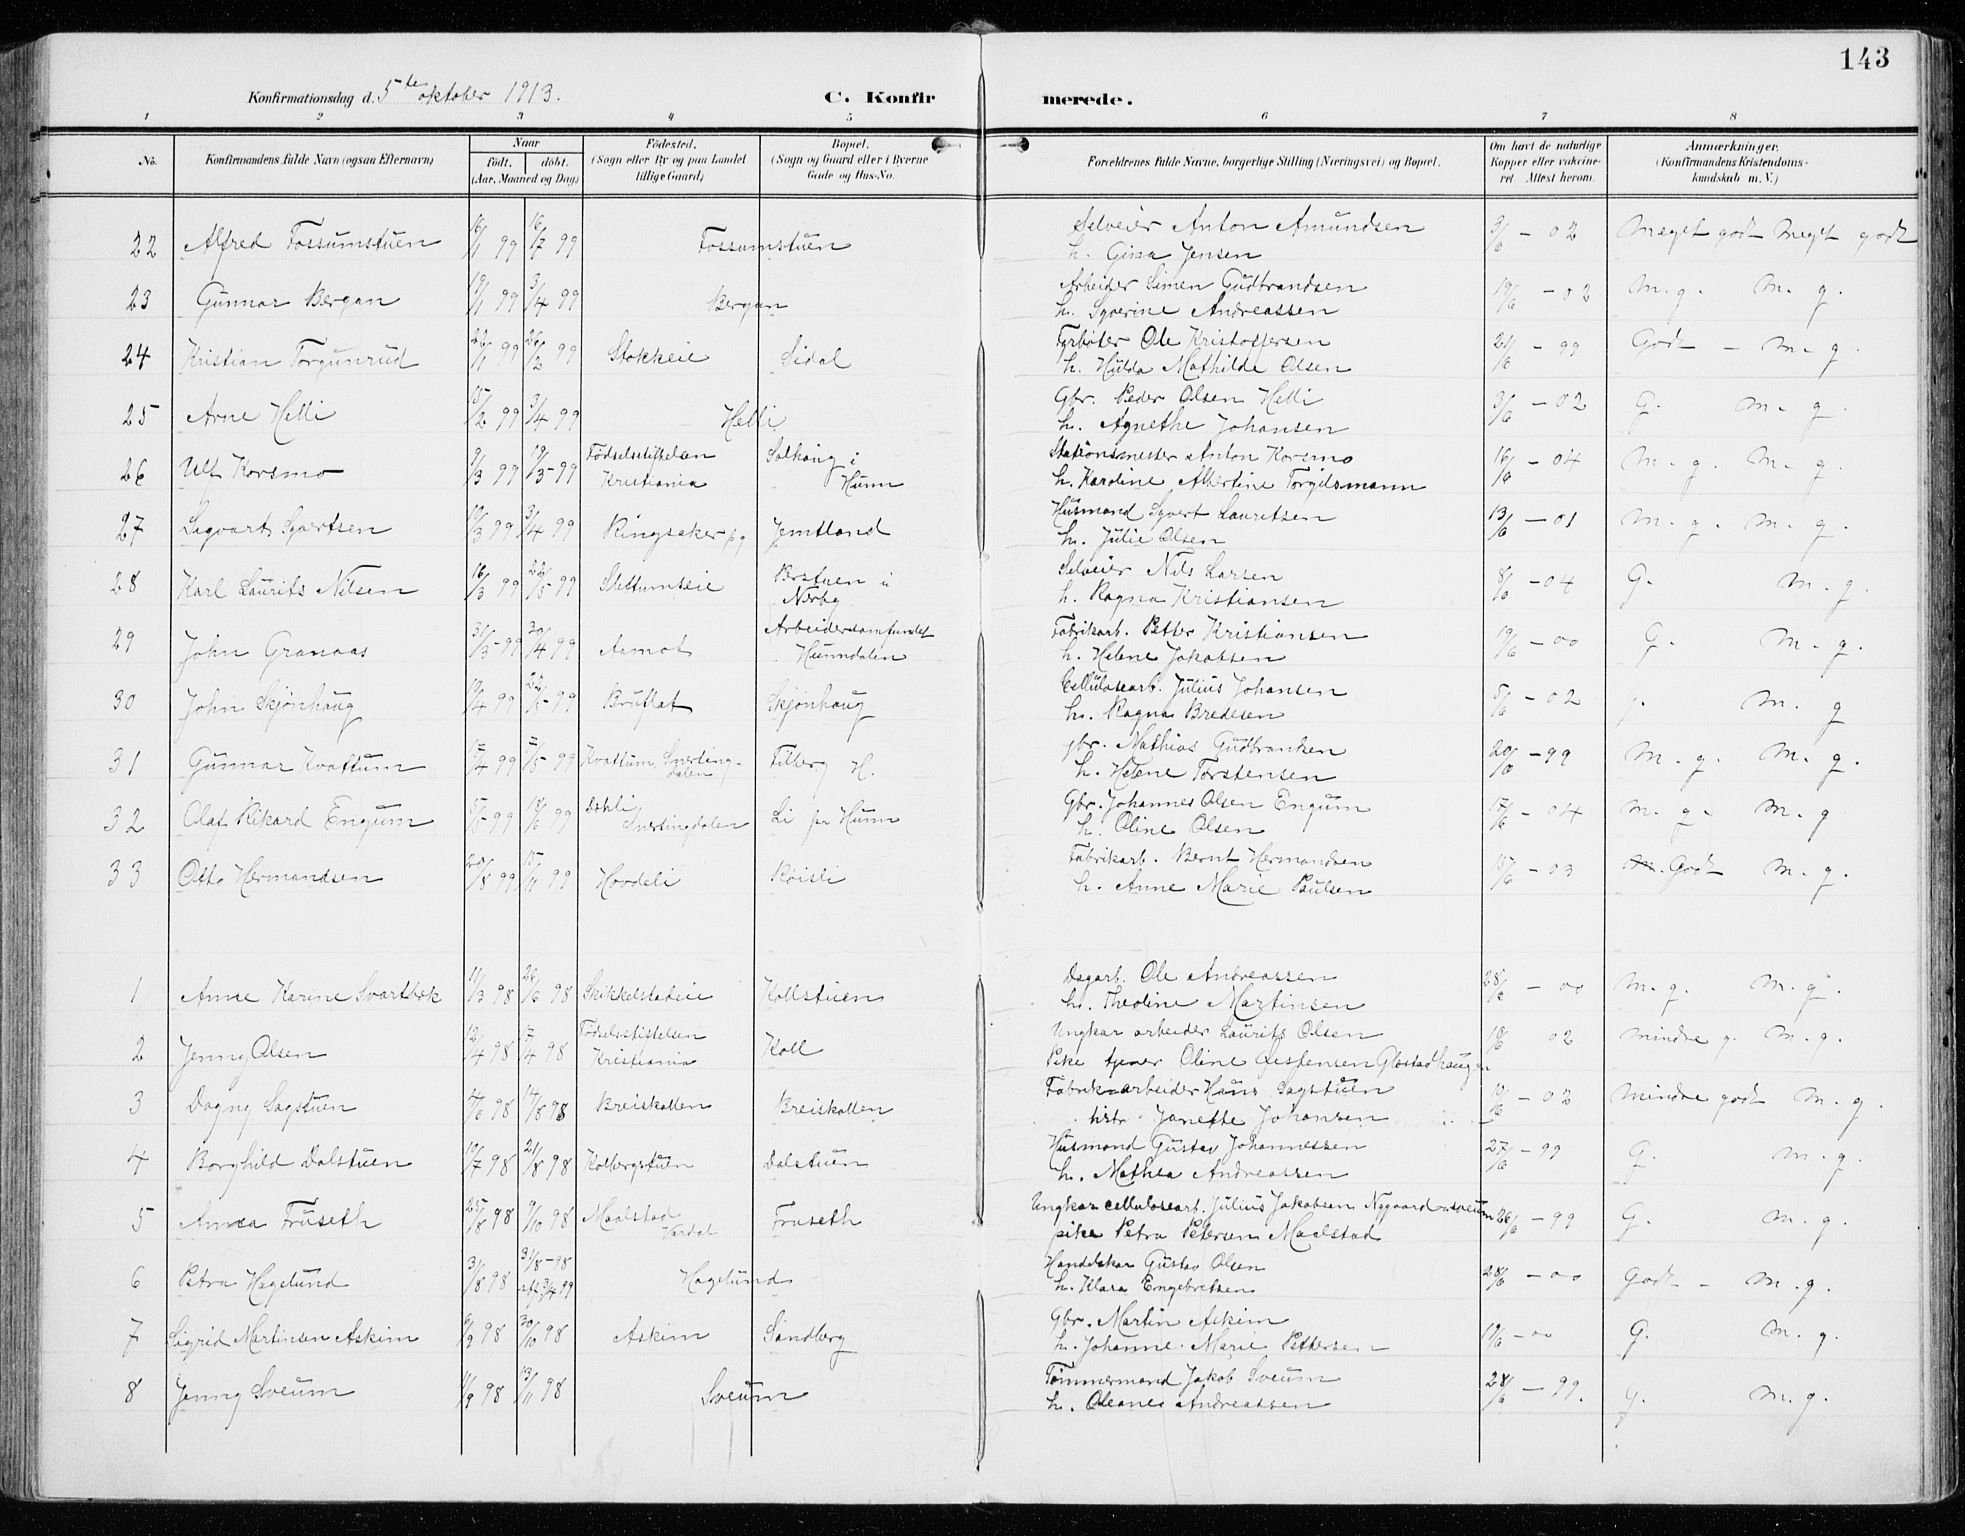 143
Konfirmationsdag d. 5te oktober 1913. C. Konfirmerede.
1 2 3 4 5 6 7 8
No. Konfirmandens fulde Navn (ogsaa Efternavn) Naar født, døbt. (Aar, Maaned og Dag) Fødested. (Sogn eller By og paa Landet tillige Gaard) Bopæl. (Sogn og Gaard eller i Byerne Gade og Hus-No. Forældrenes fulde Navne, borgerlige Stilling (Næringsvei) og Bopæl. Om havt de naturlige Kopper eller vaccineret Attest herom. Anmærkninger. (Konfirmandens Kristendomskundskab m. V.)
22 Alfred Fossumstuen 16/1 99 16/7 99 Fossumstuen Selveier Anton Amundsen 3/6 - 02 Meget godt Meget godt
h. Gina Jensen
23 Gunnar Bergan 19/1 99 3/4 99 Bergan Arbeider Simen Gudbrandsen 19/6 - 02 M. g. M. g.
h. Syverine Andreassen
24 Kristian Torgunrud 22/1 99 26/2 99 Stokkeie Sidal Fyrbøter Ole Kristoffersen 21/6 - 99 Godt - M. g.
h. Hulda Mathilde Olsen
25 Arne Helli 15/2 99 3/4 99 Helli Gbr. Peder Olsen Helli 3/6 - 02 G. M. g.
h. Agnethe Johansen
26 Ulf Korsmo 9/3 99 19/3 - 99 Fødselsstiftelsen Kristiania Solhaug i Hunn Stationsmester Anton Korsmo 16/6 - 04 M. g. M. g.
h. Karoline Albertine Torgilsmann
27 Sigvart Syvertsen 12/3 99 3/4 99 Ringsaker pg Jemtland Husmand Syvert Lauritsen 13/6 - 01 M. g. M. g.
h. Julie Olsen
28 Karl Laurits Nilsen 16/3 99 22/5 99 Slettumseie Brotuen i Nærby Selveier Nils Larsen 8/6 - 04 G. M. g.
h. Ragna Kristiansen
29 John Granaas 31/3 - 99 30/4 99 Aamot Arbeidersamfundet Hunndalen Fabrikarb. Petter Kristiansen 19/6 - 00 G. M. g.
h. Helene Jakobsen
30 John Skjønhaug 19/4 99 22/5 - 99 Bruflat Skjønhaug Cellulosearb. Julius Johansen 5/6 - 02 g. M. g
h. Ragna Bredesen
31 Gunnar Kvattum 17/4 99 /5 99 Kvattum, Snertingdalen Filberg H. gbr. Mathias Gudbrandsen 20/6 - 99 M. g. M. g.
h. Helene Torstensen
32 Olaf Rikard Engum 5/5 - 99 18/6 99 Dahli Snertingdalen Li pr Hunn Gbr. Johannes Olsen Engum 17/6 - 04 M. g. M. g
h. Oline Olsen
33 Otto Hermandsen 20/8 99 15/11 99 Hovdeli Røisli Fabrikarb. Bernt Hermandsen 15/6 - 03 Godt M. g.
h. Anne Marie Paulsen
1 Anne Karine Svartbæk 11/3 98 26/6 98 Skikkelstadeie Kollstuen Dagarb. Ole Andreassen 28/6 - 00 M. g. M. g.
h. Theoline Martinsen
2 Jenny Olsen 12/4 98 17/4 98 Fødselsstiftelsen Kristiania Koll Ungkar arbeider Laurits Olsen 19/6 02 mindre g. M. g.
Pike tjener Oline Jespersen Glæstadhaugen
3 Dagny Sagstuen 4/6 98 14/8 98 Breiskallen Breiskallen Fabrikarbeider Hans Sagstuen 19/6 - 02 Mindre godt M. g.
hstr Janette Johansen
4 Borghild Dalstuen 10/7 98 21/8 98 Kolbergstuen Dalstuen Husmand Gustav Johannessen 27/6 - 99 G. M. g.
h. Mathea Andreassen
5 Anna Fruseth 25/8 98 9/10 98 Maalstad Vardal Fruseth Ungkar cellulosearb. Julius Jakobsen Nygaard 26/6 - 99 G. M. g.
pike Petra Petersen Maalstad
6 Petra Hagelund 3/8 98 31/8 - 98 3/4 99 Hagelund Handelskar Gustav Olsen 28/6 - 00 Godt - M. g.
h. Klara Engebretsen
7 Sigrid Martinsen Askim 6/9 98 30/10 98 Askim Sandberg Gbr. Martin Askim 19/6 - 00 G. M. g.
h. Johanne Marie Pettersen
8 Jenny Sveum 11/9 98 13/11 98 Sveum Tømmermand Jakob Sveum 28/6 - 99. g. M. g.
h. Oleanes Andreassen